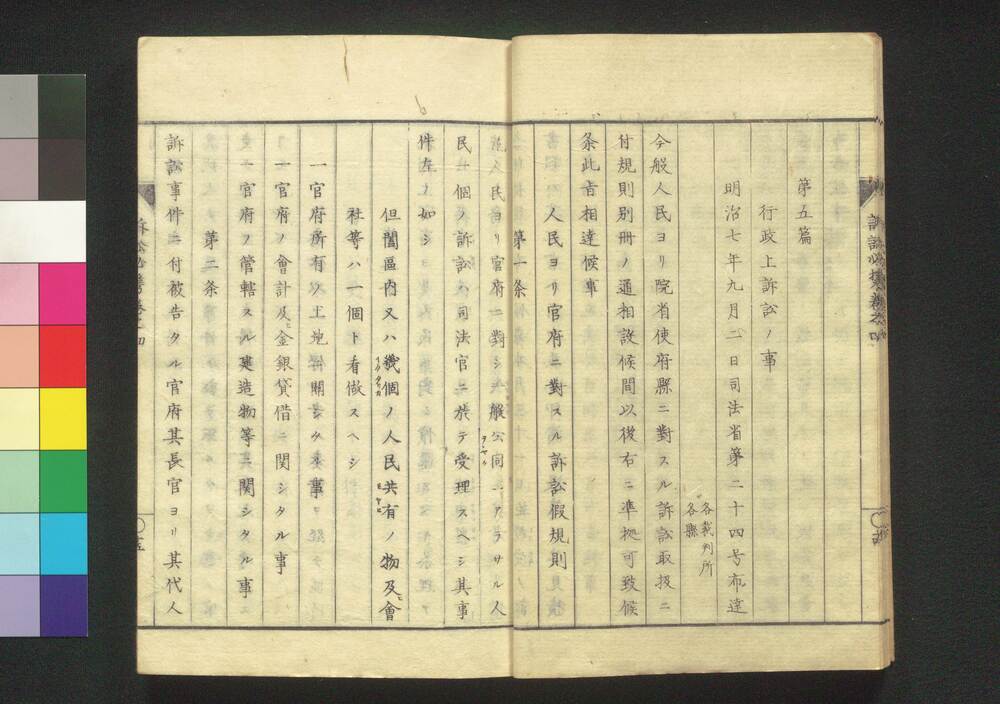 第五篇
行政上訴訟ノ事
明治七年九月二日司法省第二十四号布達
各裁判所
各縣
今般人民ヨリ院省使府縣ニ對スル訴訟取扱ニ
付規則別冊ノ通相設候間以後右ニ準拠可致候
条此旨相達候事
人民ヨリ官府ニ對スル訴訟假規則
第一条
人民ヨリ官府ニ對シ一般公同ニアラサル人
民一個ノ訴訟ハ司法官ニ於テ受理スヘシ其事
件左ノ如シ
但闔區内又ハ幾個ノ人民共有ノ物及ヒ會
社等ハ一個ト看做スヘシ
一官府所有ノ土地ニ関シタル事
一官府ノ會計及ヒ金銀貸借ニ関シタル事
一官府ノ管轄スル建造物等ニ関シタル事
第二条
訴訟事件ニ付被告タル官府其長官ヨリ其代人